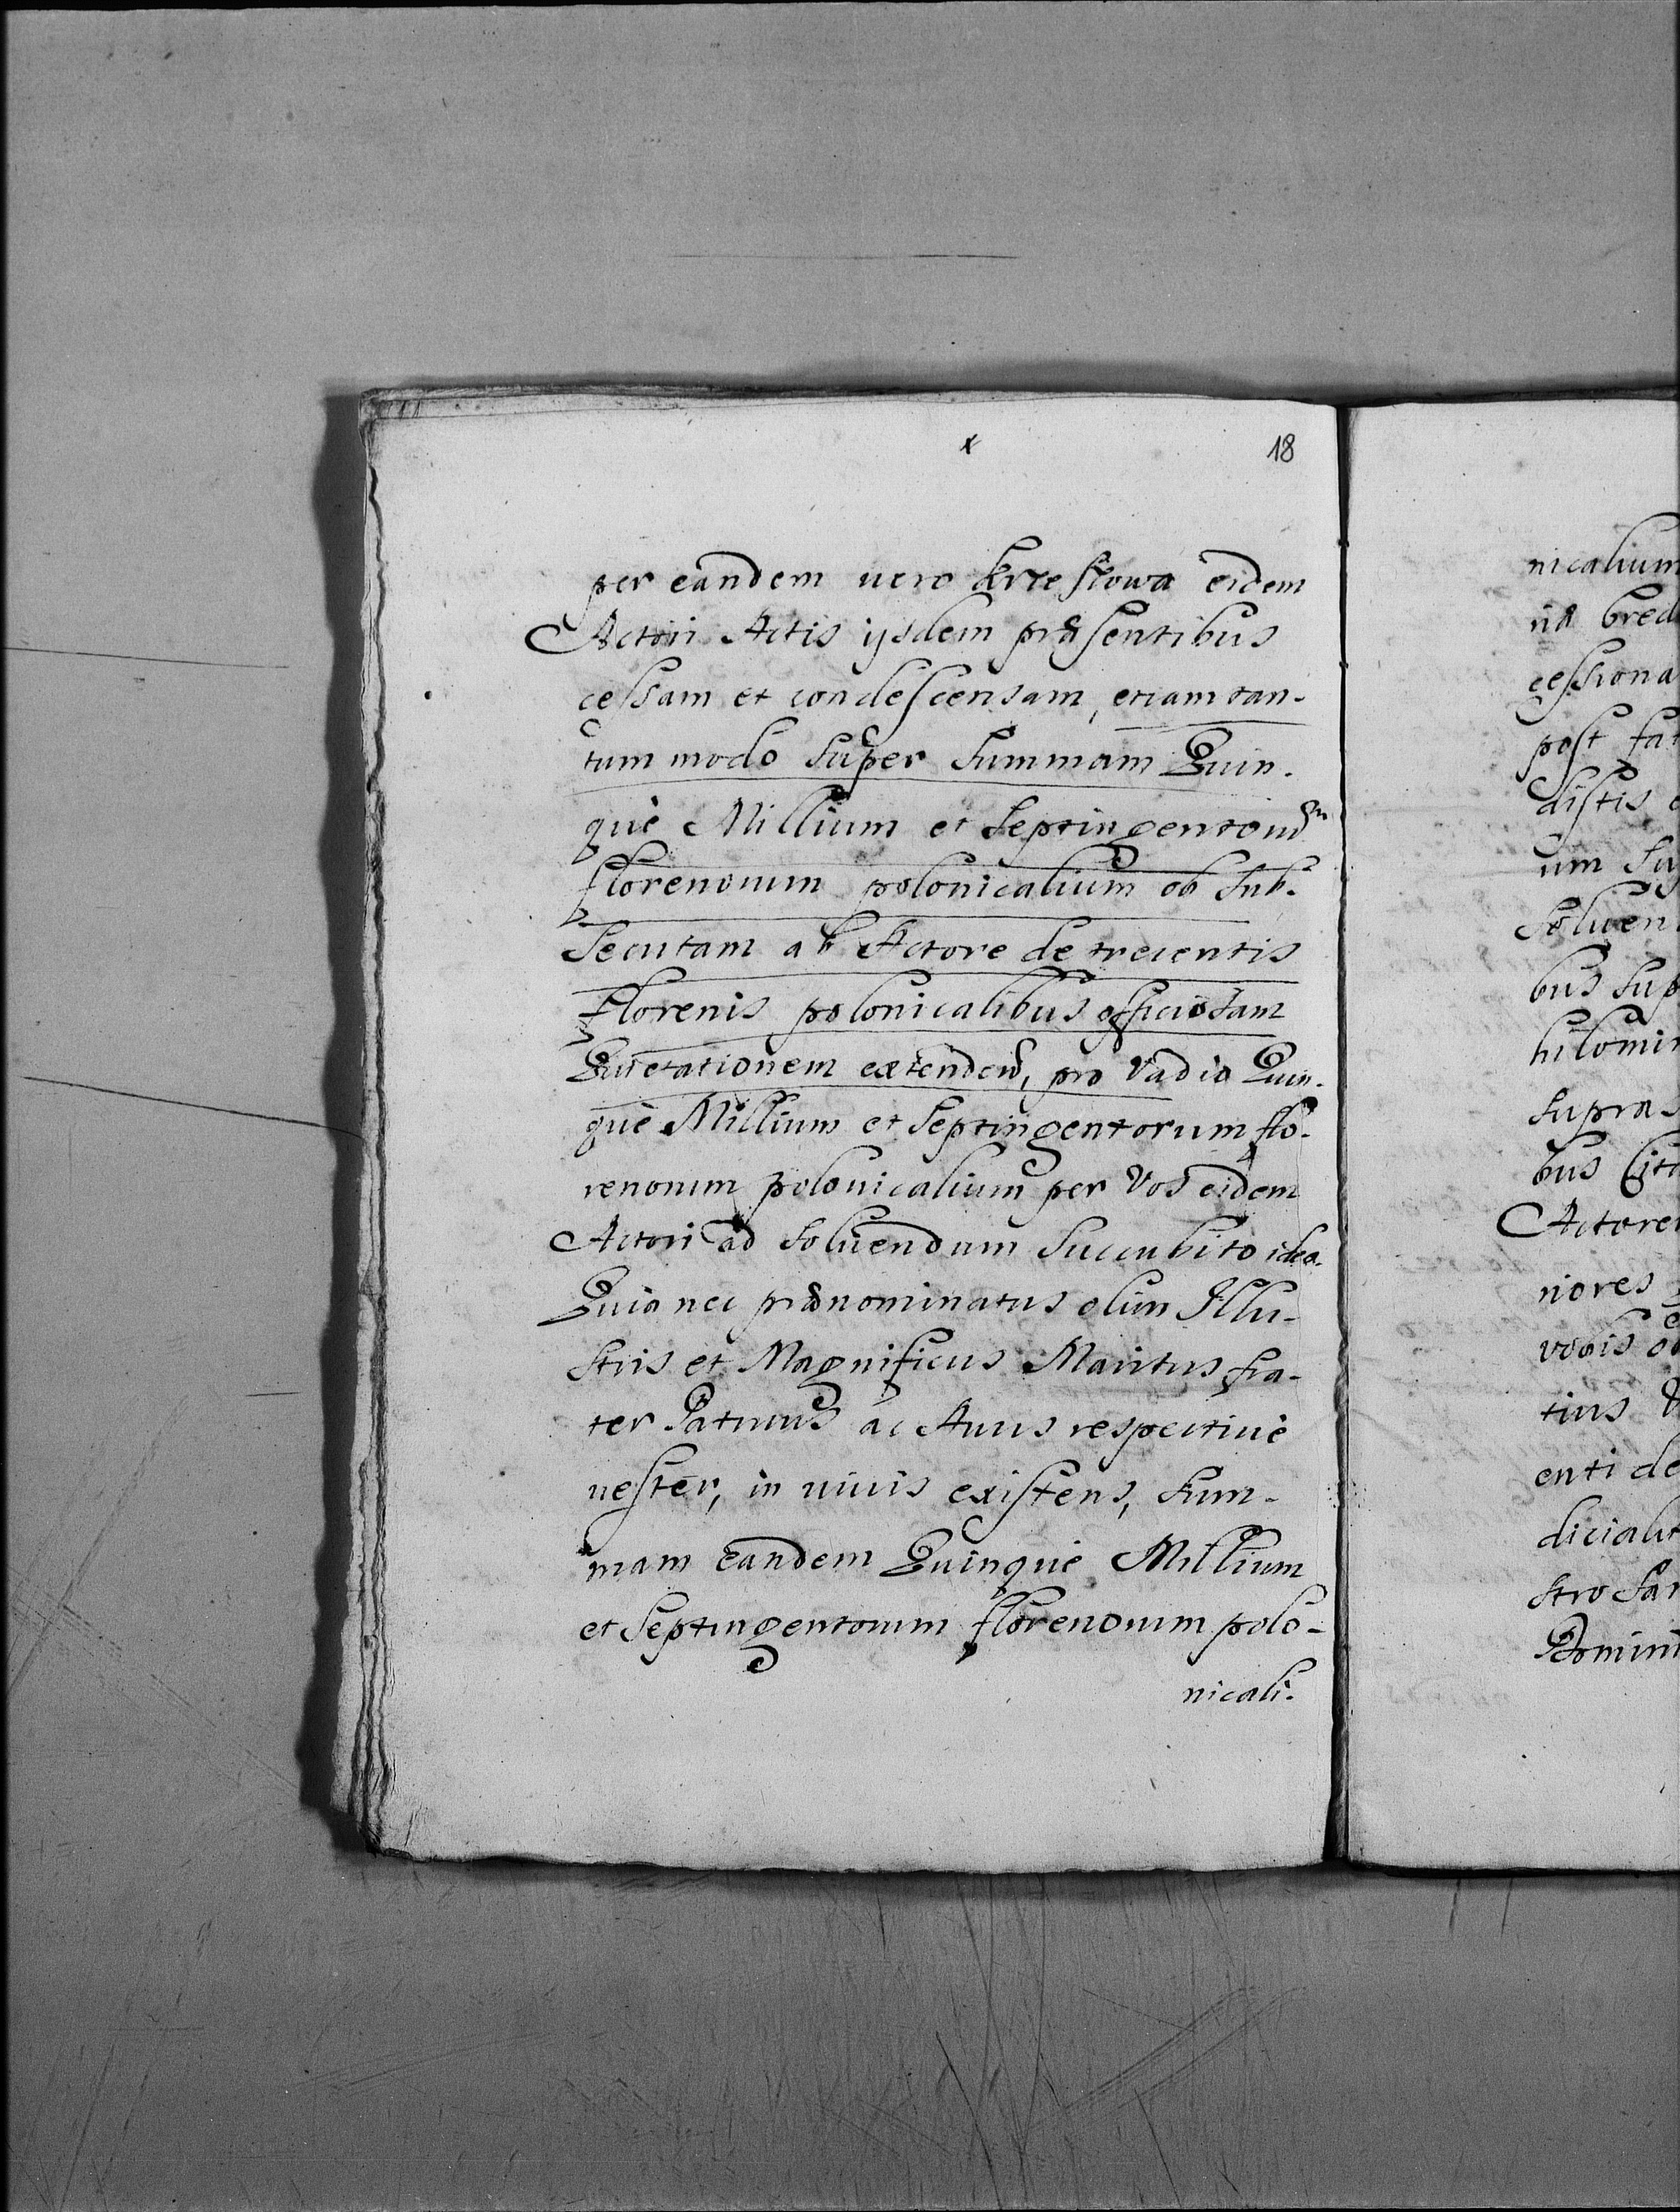 x 18
per eandem uero Krzesłowa eidem
Actori Actis ijsdem præsentibus
cessam et condescensam, etiam tan-
tum modo super summam Quin-
què Millium et Septingentoru͂m
florenorum polonicalium ob sub-
Secutam ab Actore de trecentis
Florenis polonicalibus officiosam
Quietationem extenden, pro Vadio Quin-
què Millium et Septingentorum flo-
renorum polonicalium per Vos eidem
Actori ad soluendum succubito ideo.
Quia nec prænominatus olim Illu-
stris et Magnificus Maritus fra-
ter Patruus ac Auus respectiuè
uester, in uiuis existens, sum-
mam eandem Quinquè Millium
et Septingentorum florenorum polo-
nicali-
nicalium
post
distis
um
bus
supra
bus
niores
tius
enti de
stro